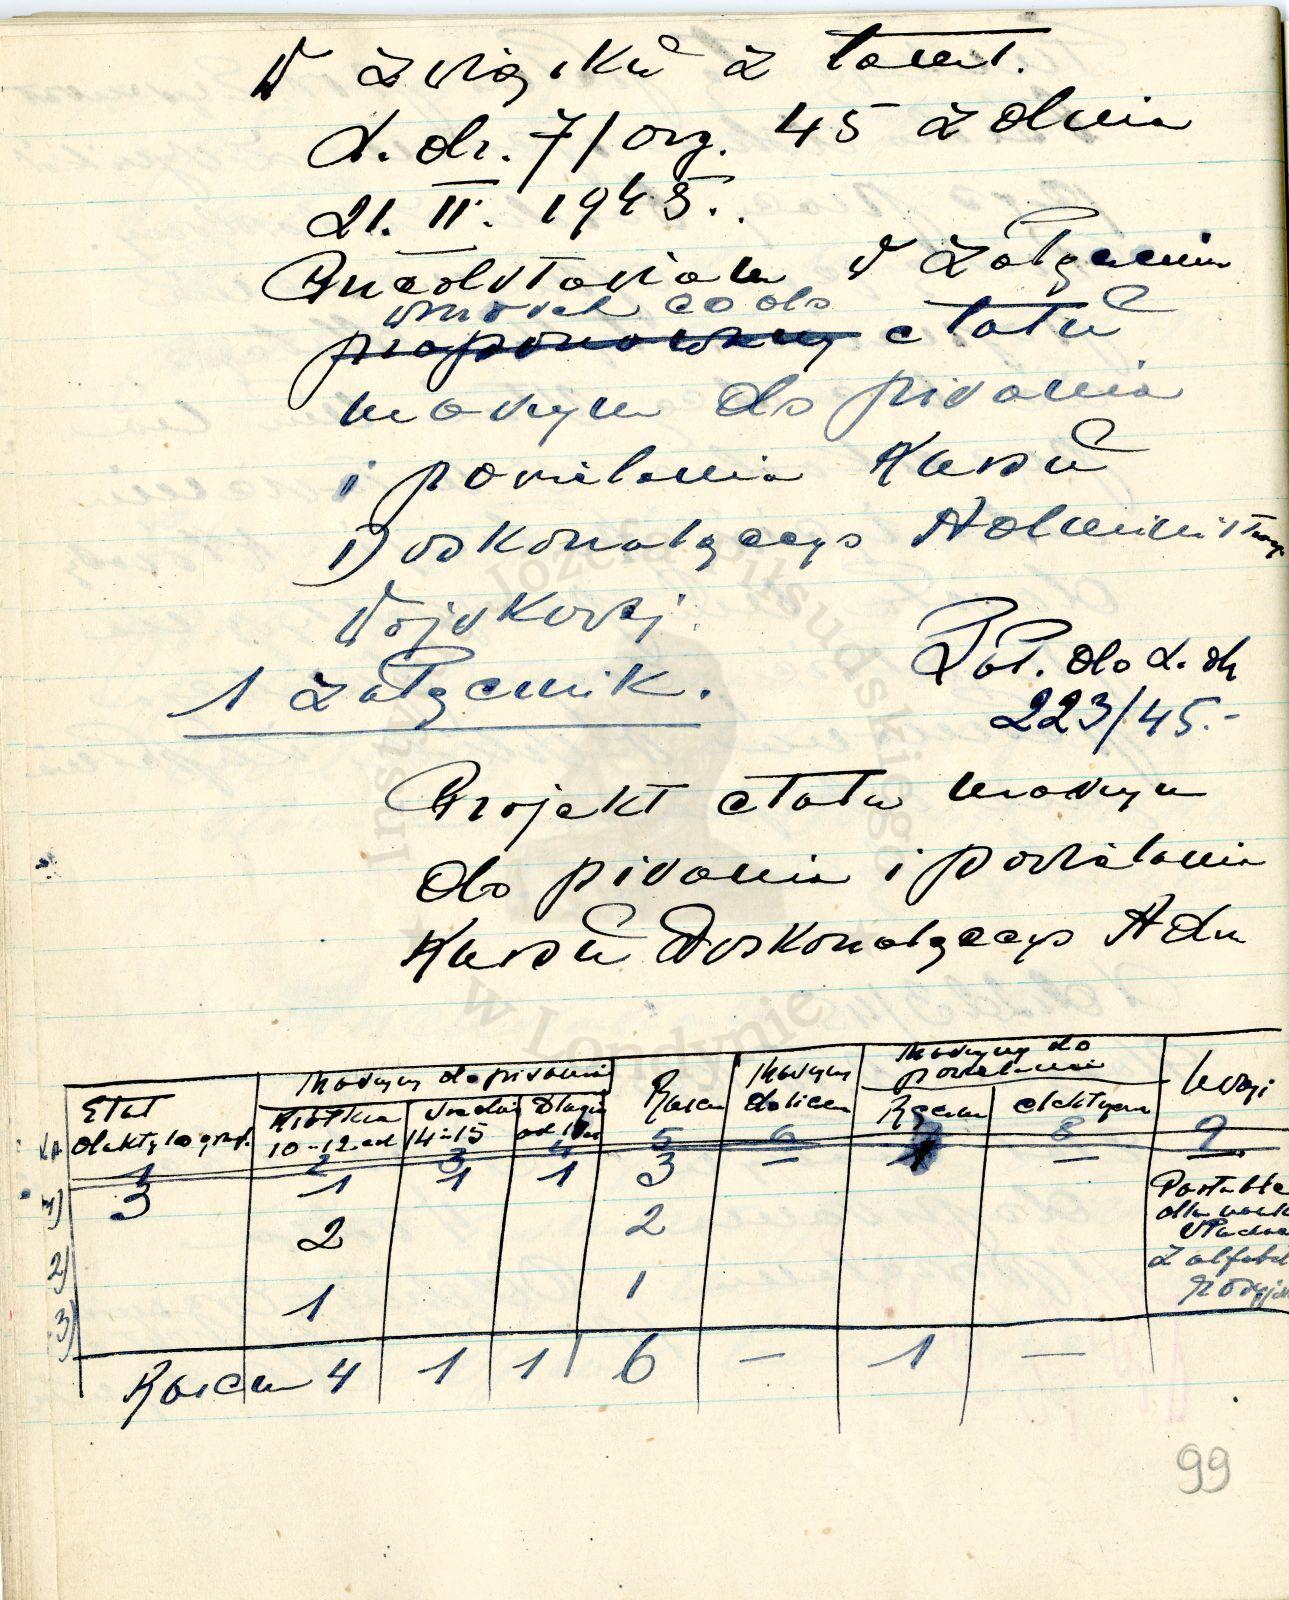 W związku z tamt.
L. dz. 7/org. 45 z dnia
21. II. 1945.
Przedstawiam w załączeniu
wniosek co do
proponowany etatu
maszyn do pisania
i powielania Kursu
Doskonalącego Administracji
Wojskowej.
1 załącznik.
Zał. do L. dz.
223/45.-
Projekt etatu maszyn
do pisania i powielania
Kursu Doskonalącego Adm
Etat daktylograf.
Maszyny do pisania
Krótkie 10-12 cal
Średnie 14-15
Długie
Razem
Maszyny do liczen
Maszyny do powielania
Ręczne
elektryczne
Uwagi
1 2 3 4 5 6 7 8 9
1) 3 1 1 1 3 — 1 —
2) 2 2
3) 1 1
z alfabet
Razem 4 1 1 6 — 1 —
99
Instytut Józefa Piłsudskiego w Londynie